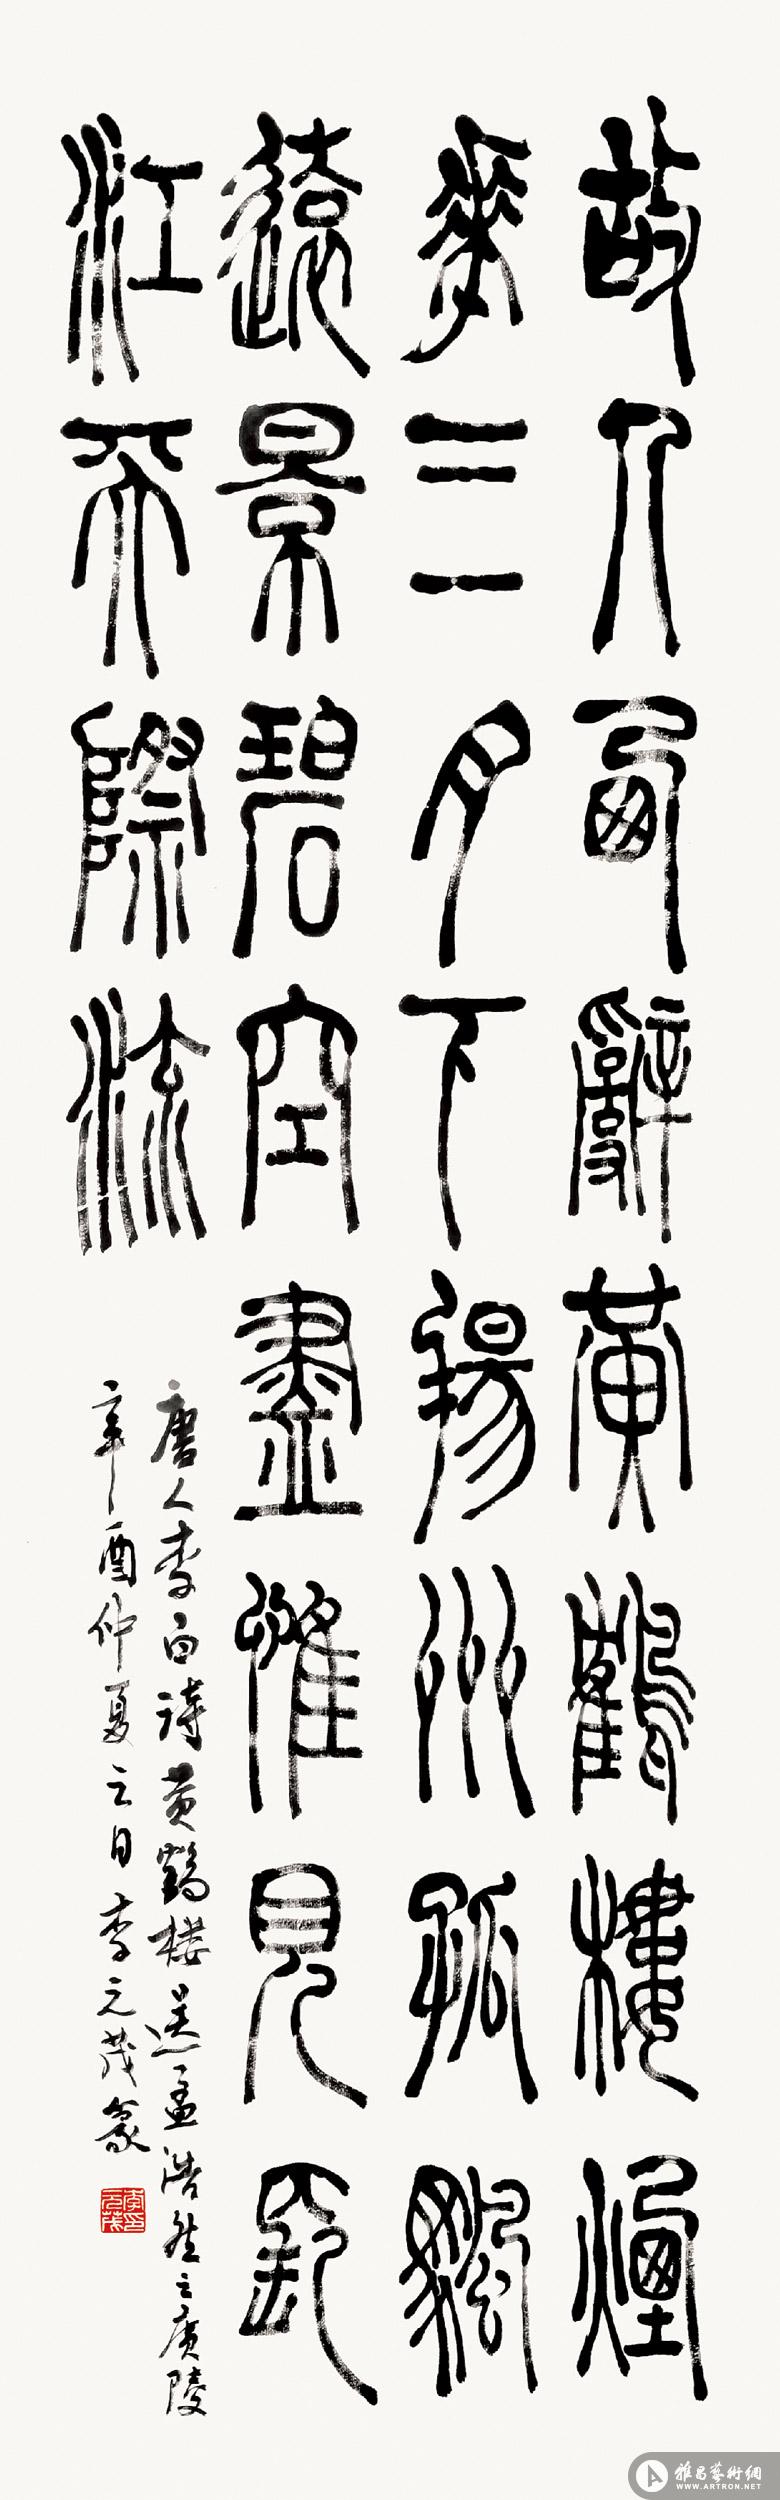 故人西辭黃鶴樓煙
華三月下揚州孤颿
遠景碧空盡惟見長
江天際流
唐人李白詩黃鶴樓送孟浩然之廣陵
辛酉仲夏之日李元茂篆
李元茂印
雅昌藝術網
WWW.ARTRON.NET